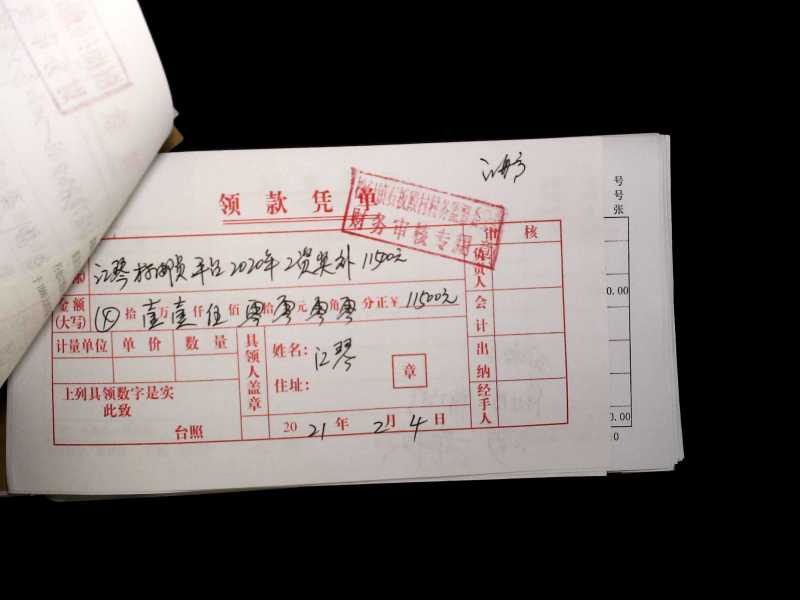 领款凭单
财务审核专用
江琴村邮员平台2020年工资奖补11500元
金额
(大写)
拾壹万壹仟伍佰零拾零元零角零分正￥11500元
计量单位 单价 数量
具领人盖章
姓名：江琴
住址：
章
上列具领数字是实
此致
台照
2021年2月4日
审核
负责人
会计
出纳
经手人
号
号
张
0.00
0.00
0